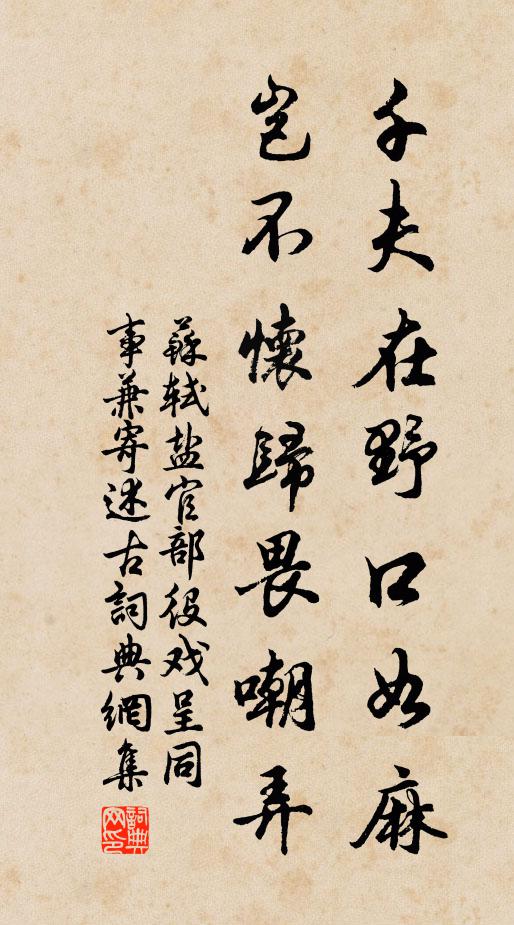 千夫在野口如麻
豈不懷歸畏嘲弄
蘇軾盐官部役戏呈同
事兼寄述古詞典網集
詞典网印